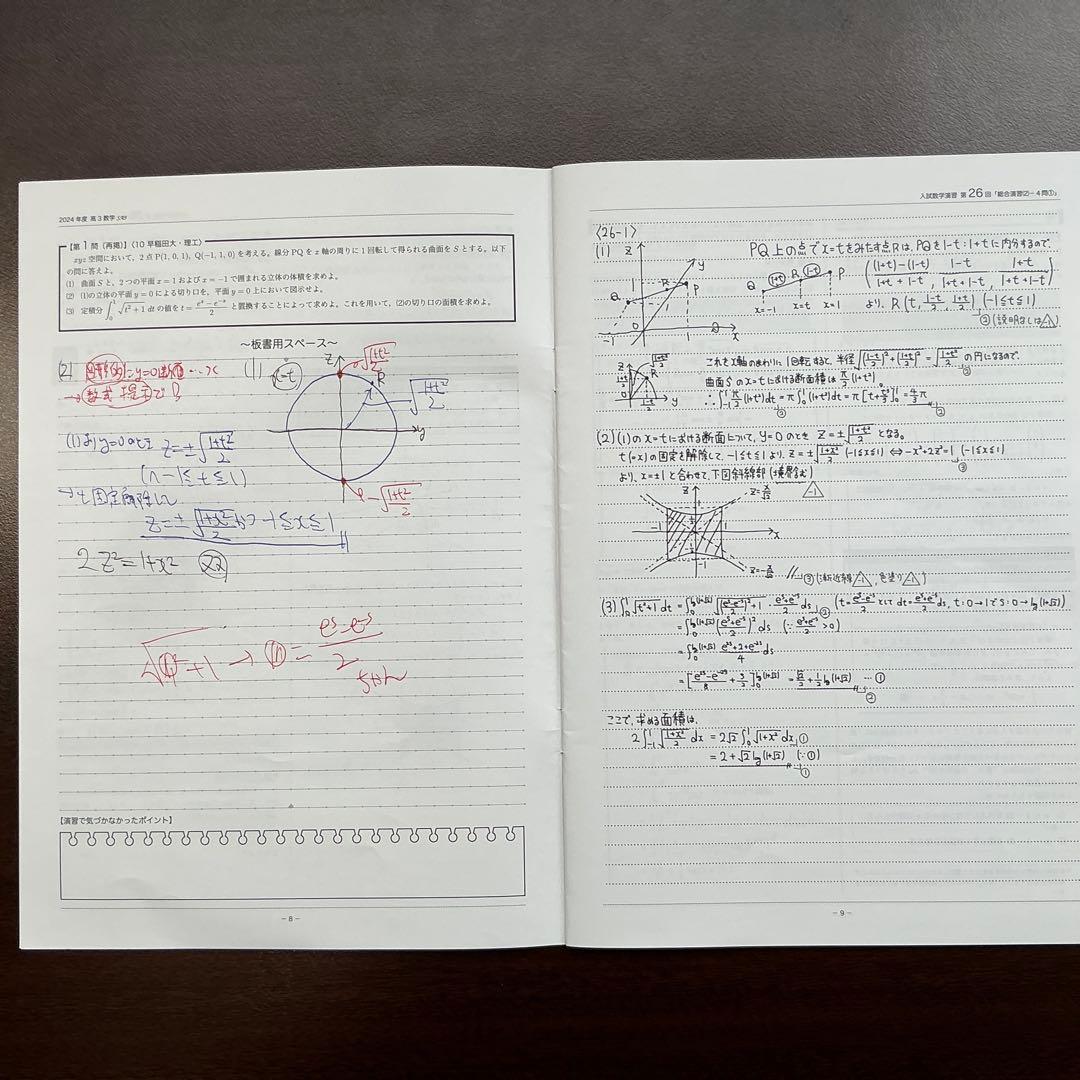 2024年度 高3数学
【第1問（再掲）】〈10 早稲田大・理工〉
xyz空間において，2点P(1, 0, 1)，Q(-1, 1, 0)を考える。線分PQをx軸の周りに1回転して得られる曲面をSとする。以下の問に答えよ。
(1) 曲面Sと，2つの平面x=1およびx=-1で囲まれる立体の体積を求めよ。
(2) (1)の立体の平面y=0による切り口を，平面y=0上において図示せよ。
(3) 定積分∫₀¹√(t²+1) dtの値をt=(eˢ-e⁻ˢ)/2と置換することによって求めよ。これを用いて，(2)の切り口の面積を求めよ。
〜板書用スペース〜
(2)
(1)
z
√((1+t²)/2)
R
√((1+t²)/2)
y
-√((1+t²)/2)
(1)よりy=0のとき z=±√((1+t²)/2)
(-1≦t≦1)
→t固定解除して
z=±√((1+x²)/2) かつ -1≦x≦1
2z²=1+x²
√(□²+1) → □=(eˢ-e⁻ˢ)/2
【演習で気づかなかったポイント】
-8-
入試数学演習 第26回「総合演習②-4問①」
〈26-1〉
(1)
z
y
Q
R
P
1
-1
0
1
x
PQ上の点でx=tをみたす点Rは，PQを1-t:1+tに内分するので，
Q (1+t) R (1-t) P
x=-1 x=t x=1
(((1+t)-(1-t))/(1+t+1-t), (1-t)/(1+t+1-t), (1+t)/(1+t+1-t))
より，R(t, (1-t)/2, (1+t)/2) (-1≦t≦1)
③(説明なしは△1)
z
(1+t)/2
R
√((1+t²)/2)
0
(1-t)/2
y
これをx軸のまわりに1回転すると，半径√(((1-t)/2)²+((1+t)/2)²)=√((1+t²)/2)の円になるので，
曲面Sのx=tにおける断面積はπ/2(1+t²)。
∴∫₋₁¹ π/2(1+t²)dt=π∫₀¹(1+t²)dt=π[t+t³/3]₀¹=4/3π
(2)(1)のx=tにおける断面について，y=0のとき z=±√((1+t²)/2)となる。
t(=x)の固定を解除して，-1≦t≦1より，z=±√((1+x²)/2) (-1≦x≦1)⇔-x²+2z²=1 (-1≦x≦1)
より，x=±1と合わせて，下図斜線部(境界含む)
z
z=x/√2
1
-1
1
x
-1
z=-x/√2
③(漸近線△1，色塗り△1)
(3)∫₀¹√(t²+1) dt=∫₀^log(1+√2) √(((eˢ-e⁻ˢ)/2)²+1)・(eˢ+e⁻ˢ)/2 ds (t=(eˢ-e⁻ˢ)/2としてdt=(eˢ+e⁻ˢ)/2 ds, t:0→1でs:0→log(1+√2))
=∫₀^log(1+√2) ((eˢ+e⁻ˢ)/2)² ds (∵(eˢ+e⁻ˢ)/2>0)
=∫₀^log(1+√2) (e²ˢ+2+e⁻²ˢ)/4 ds
=[(e²ˢ-e⁻²ˢ)/8+s/2]₀^log(1+√2)=√2/2+1/2 log(1+√2) …①
②
ここで，求める面積は，
2∫₋₁¹√((1+x²)/2) dx=2√2∫₀¹√(1+x²) dx ①
=2+√2 log(1+√2) (∵①)
①
-9-